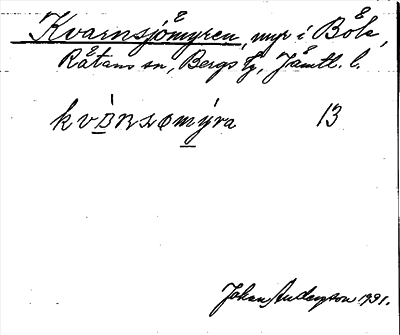 Kvarnsjömyren, myr i Bök,
Råtans sn, Bergs tg, Jämtl. l.
13
Johan Anderson 1931.